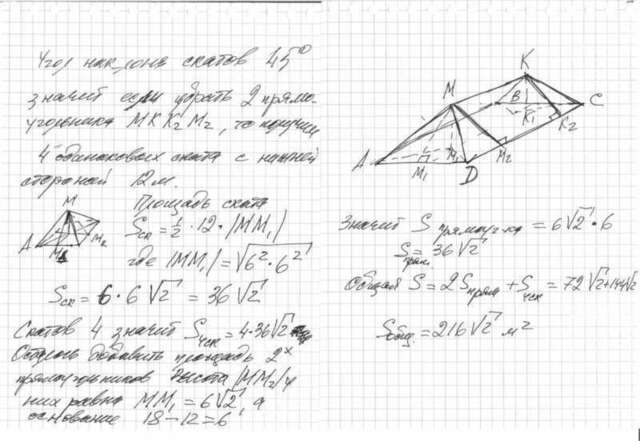 Угол наклона скатов 45°
значит если убрать 2 прямо-
угольника M K K₂ M₂, то получим
4 одинаковых ската с нижней
стороной 12 м.
Площадь ската
M
A
M₁
M₂
Sск = 1/2 · 12 · |MM₁|
где |MM₁| = √(6² · 6²)
Sск = 6 · 6 √2 = 36 √2
Скатов 4 значит S4ск = 4 · 36√2
добавить площадь 2х
прямоугольников высота |MM₂| у
них равна MM₁ = 6√2, а
основание 18 – 12 = 6
K
M
B
C
K₁
K₂
A
M₁
D
M₂
Значит S прямоуг-ка = 6√2 · 6
Sпрям = 36√2
Общая S = 2Sпрям + S4ск = 72√2 + 144√2
Sобщ. = 216√2 м²